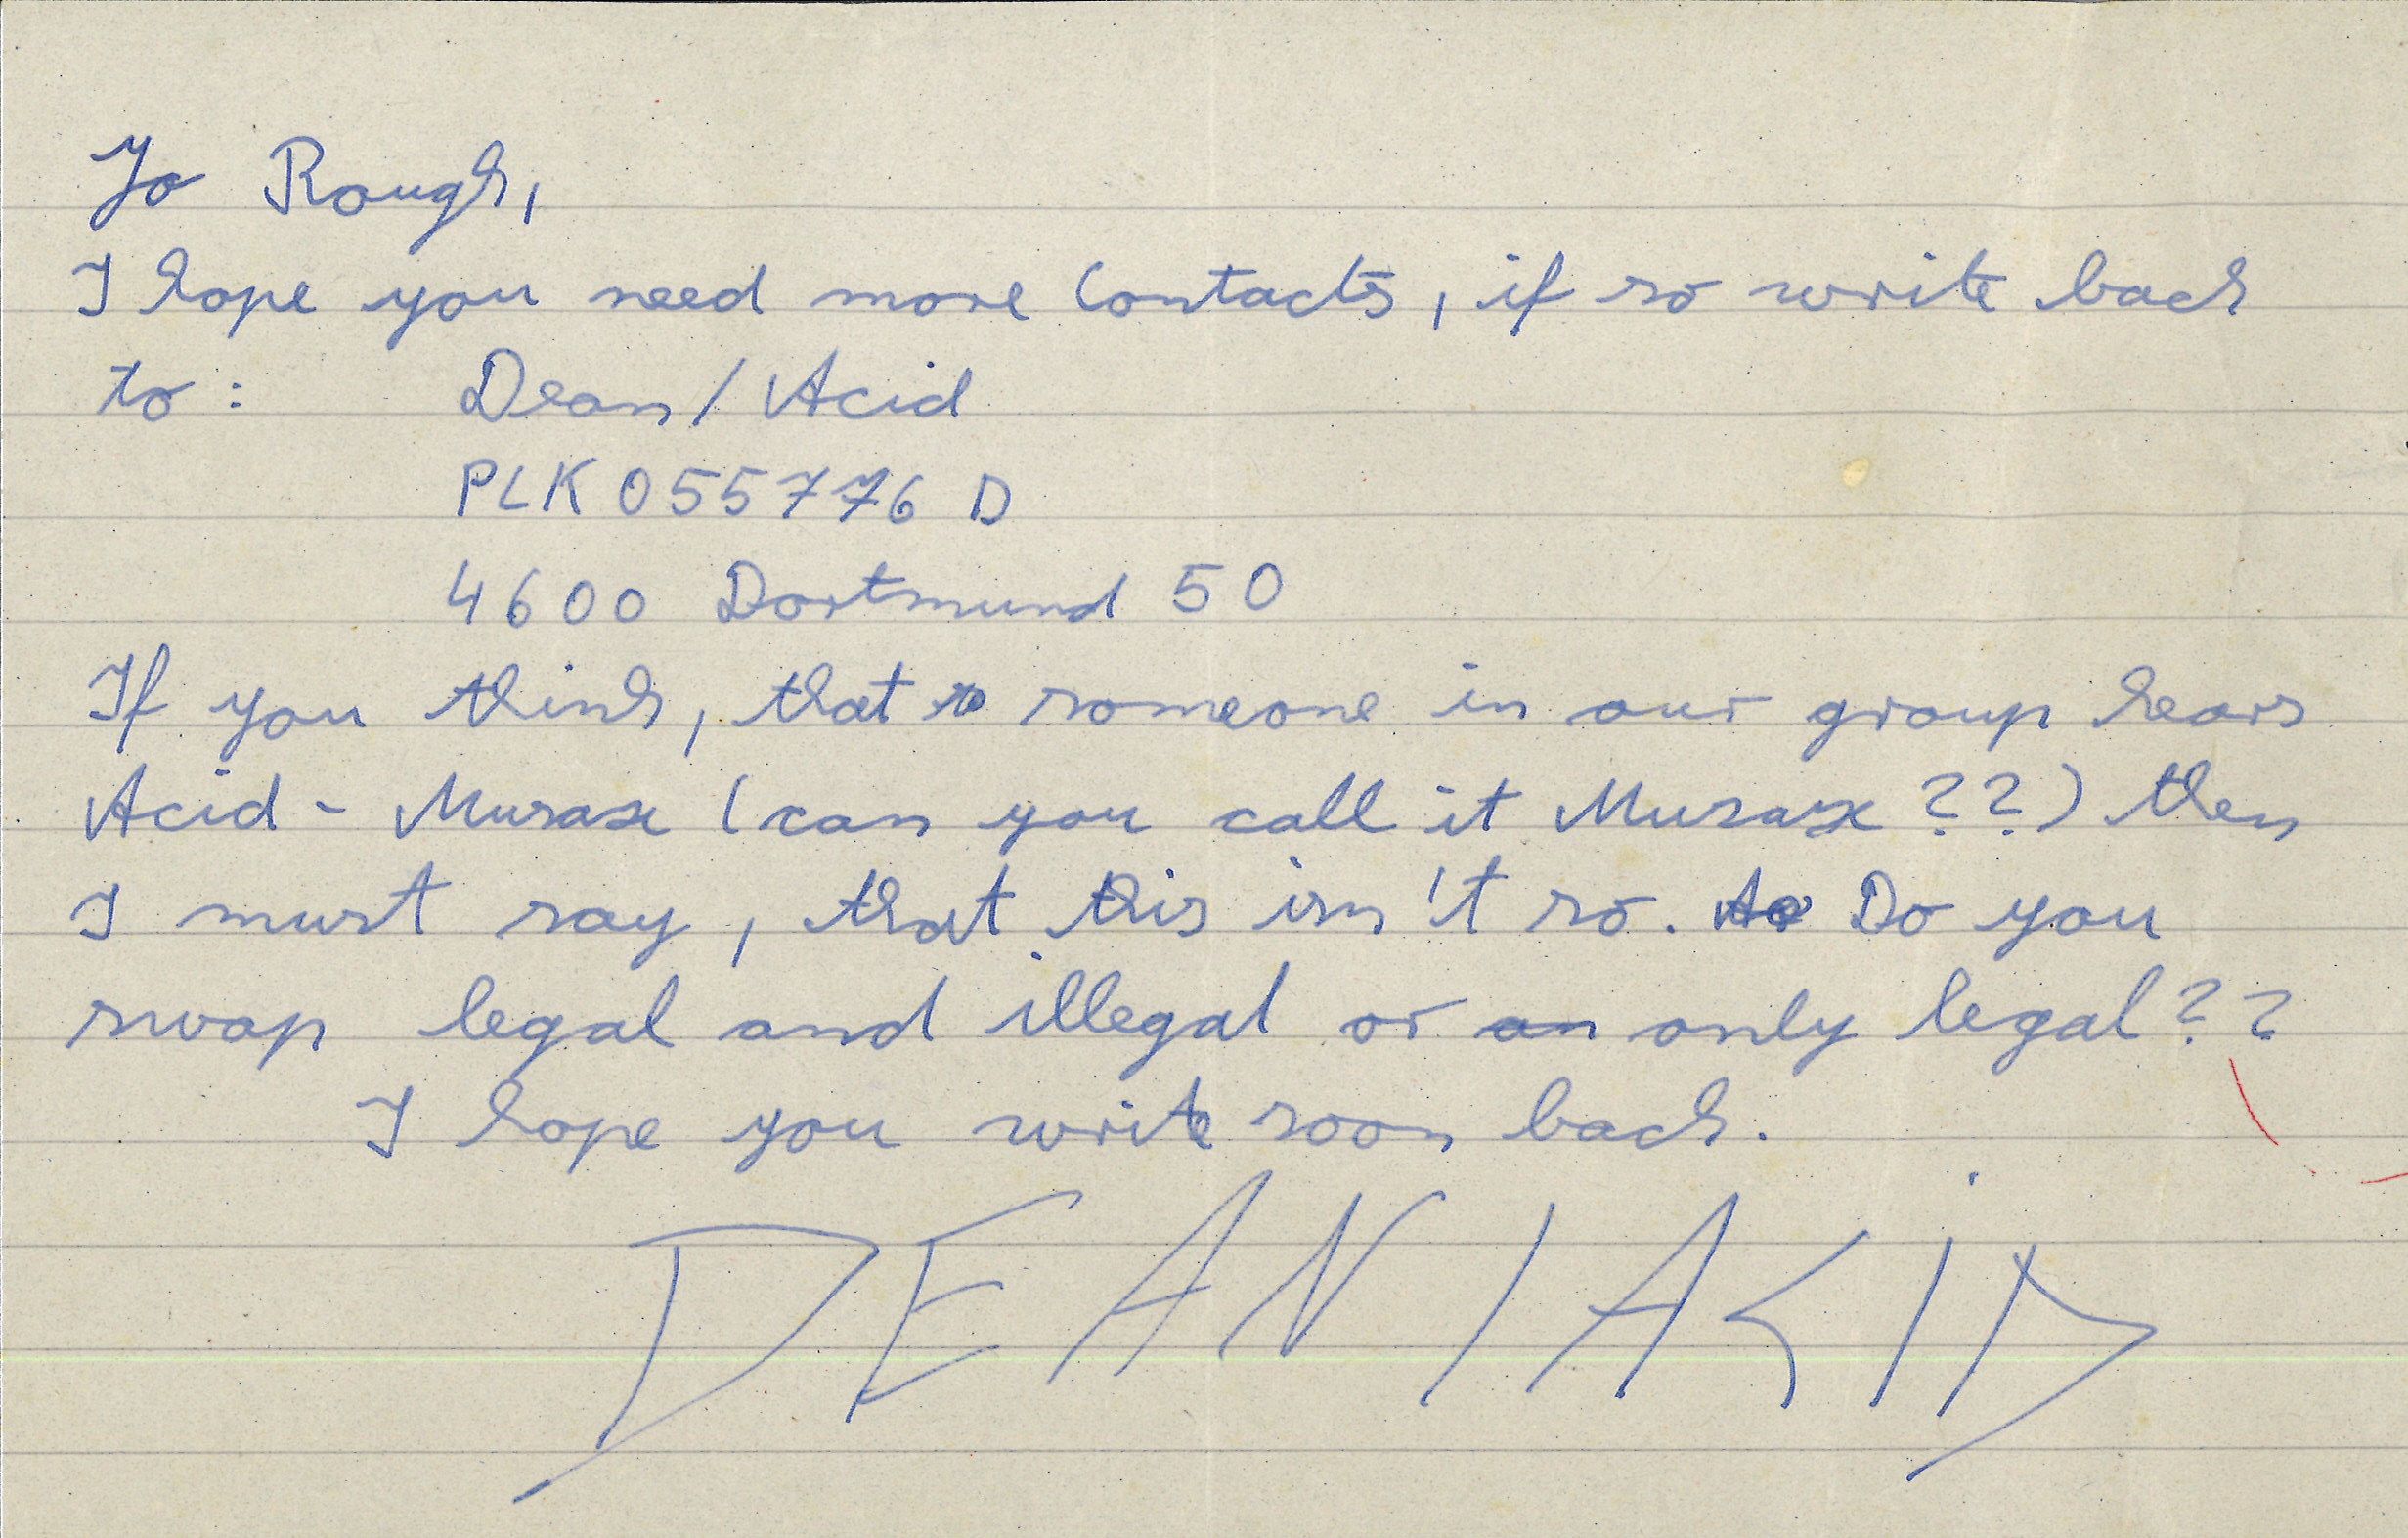 Yo Rough,
I hope you need more Contacts, if so write back
to: Dean / Acid
PLK 055776 D
4600 Dortmund 50
If you think, that so someone in our group hears
Acid - Musaxe (can you call it Musax??) then
I must say, that this isn't so. Do you
swap legal and illegal or an only legal??
I hope you write soon back.
DEAN / ACID